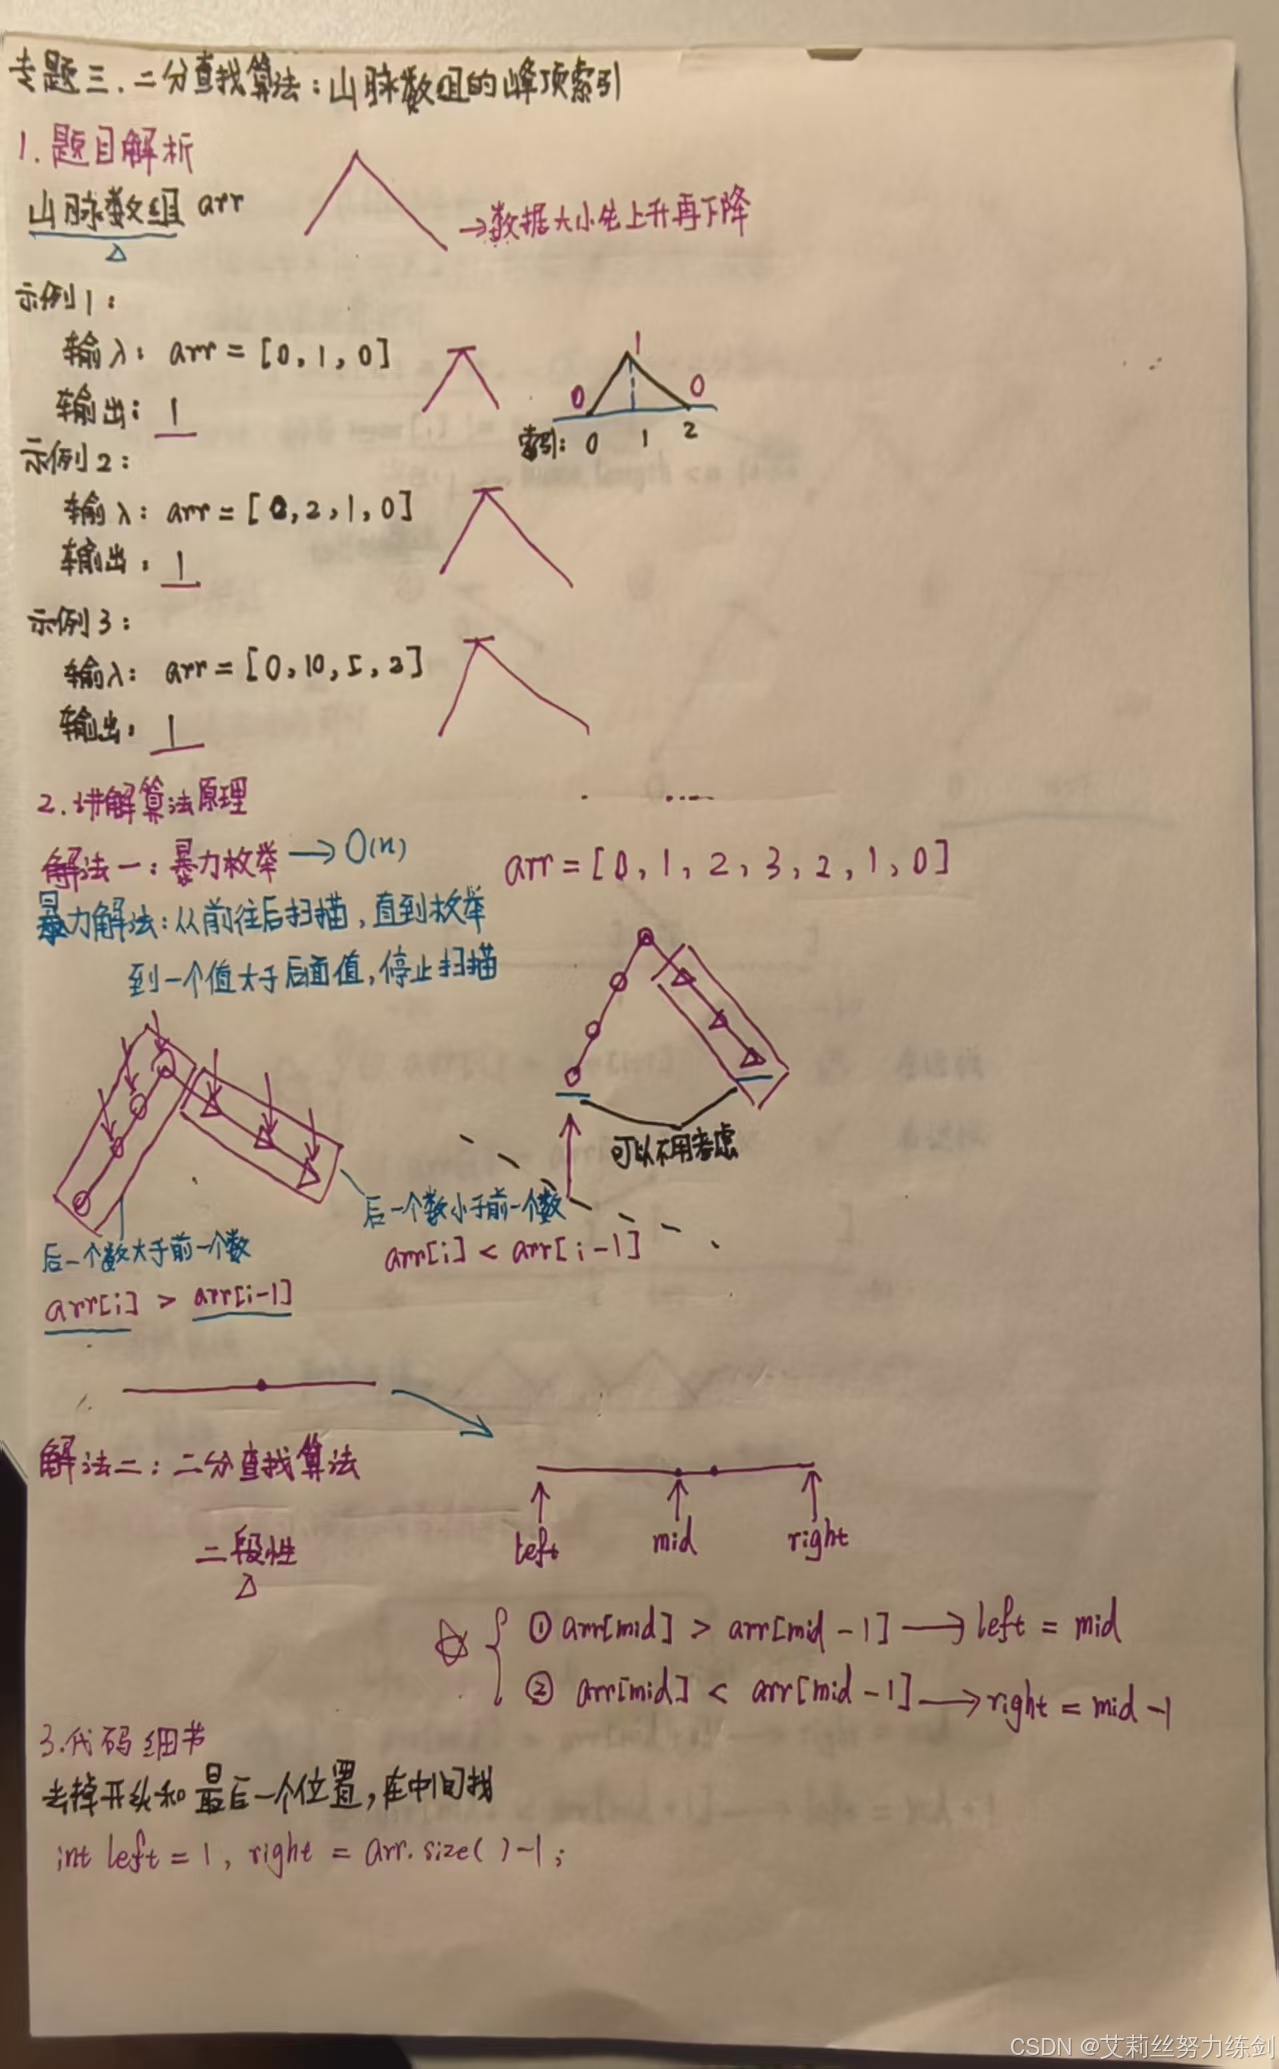 专题三.二分查找算法:山脉数组的峰顶索引
1.题目解析
山脉数组 arr
→数据大小先上升再下降
示例1:
输入: arr = [0,1,0]
输出: 1
0 1 0
索引: 0 1 2
示例2:
输入: arr = [0,2,1,0]
输出: 1
示例3:
输入: arr = [0,10,5,2]
输出: 1
2.讲解算法原理
解法一:暴力枚举 → O(n)
arr = [0,1,2,3,2,1,0]
暴力解法:从前往后扫描,直到枚举
到一个值大于后面值,停止扫描
可以不用考虑
后一个数小于前一个数
arr[i] < arr[i-1]
后一个数大于前一个数
arr[i] > arr[i-1]
解法二:二分查找算法
left mid right
二段性
① arr[mid] > arr[mid-1] → left = mid
② arr[mid] < arr[mid-1] → right = mid-1
3.代码细节
去掉开头和最后一个位置,在中间找
int left = 1, right = arr.size()-1;
CSDN @艾莉丝努力练剑